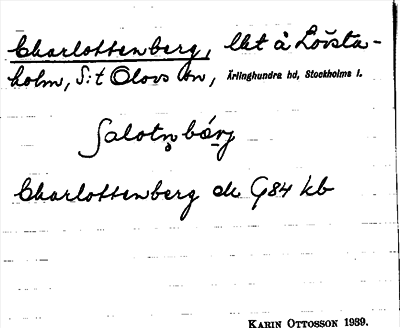 Charlottenberg, lht å Lövsta-
holm, S:t Olovs sn, Ärlinghundra hd, Stockholms l.
Charlottenberg ek G84 kb
KARIN OTTOSSON 1939.